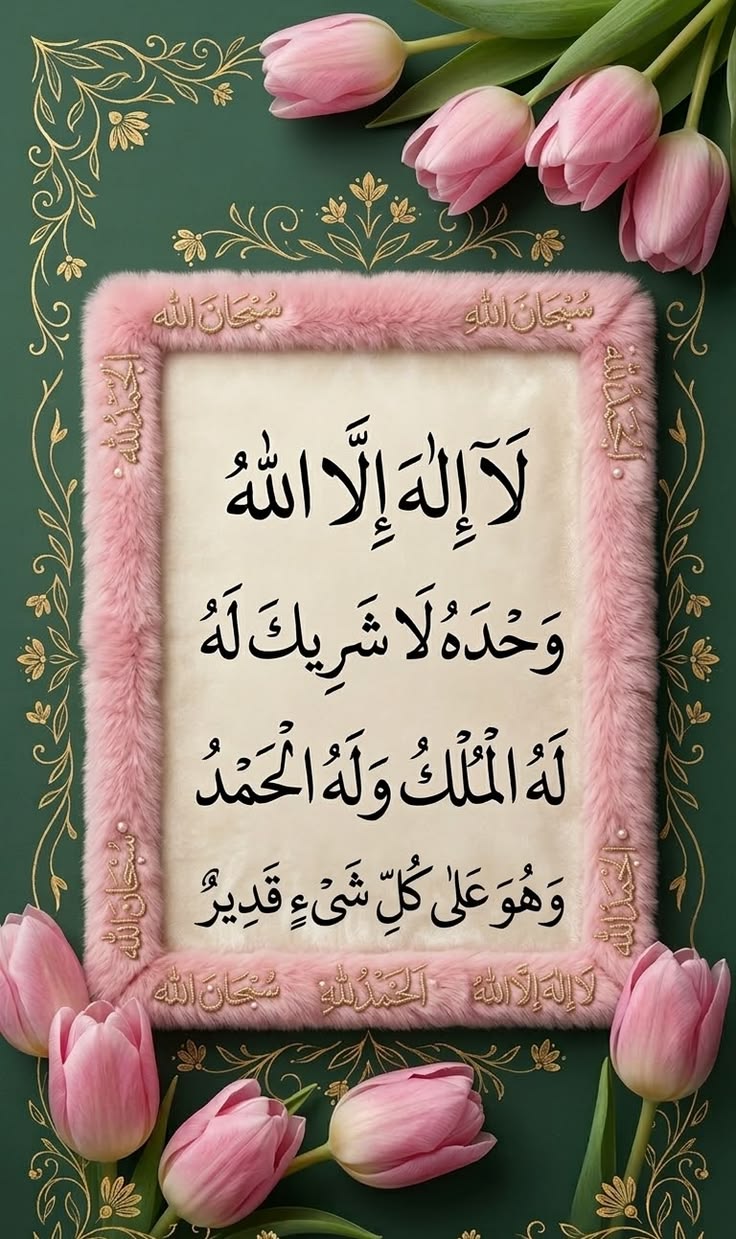 سُبْحَانَ الله
سُبْحَانَ الله
الْحَمْدُ لله
الْحَمْدُ لله
لَآ إِلٰهَ إِلَّا اللّٰهُ
وَحْدَهُ لَا شَرِيكَ لَهُ
لَهُ الْمُلْكُ وَلَهُ الْحَمْدُ
وَهُوَ عَلٰى كُلِّ شَىْءٍ قَدِيرٌ
الْحَمْدُ لله
سُبْحَانَ الله
لَا إِلٰهَ إِلَّا الله
الْحَمْدُ لله
سُبْحَانَ الله